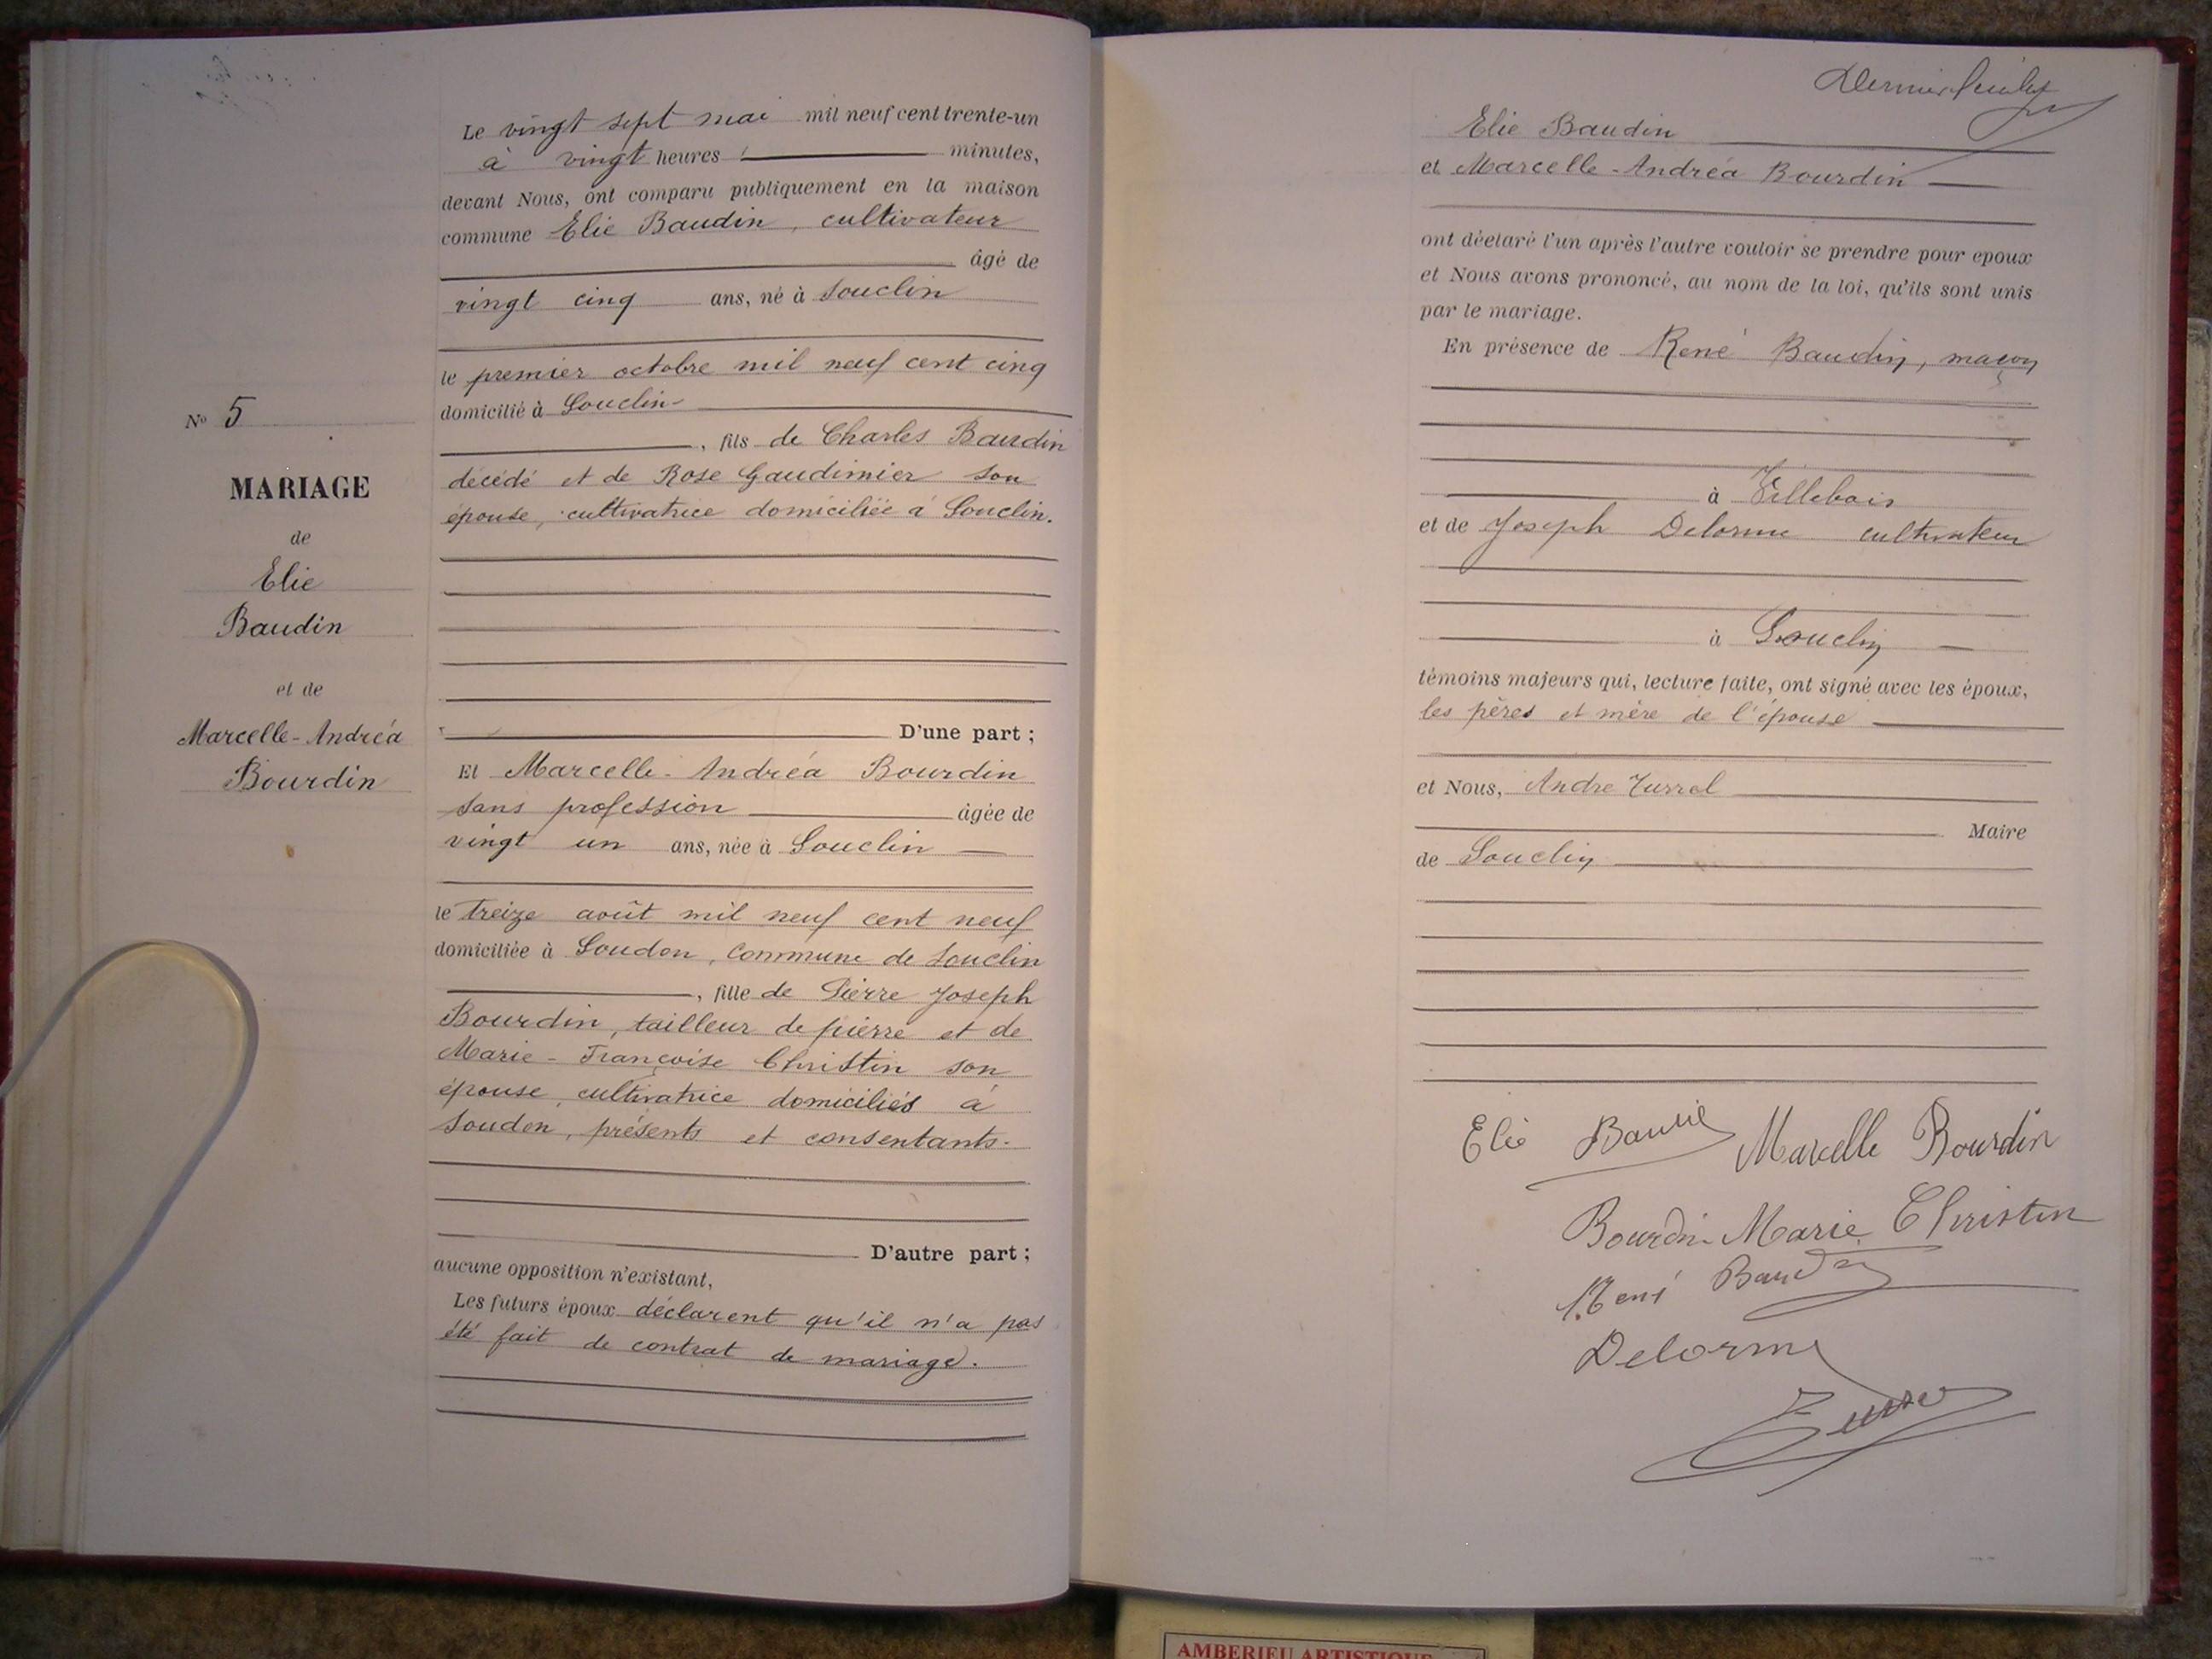 Nº 5
MARIAGE
de
Elie
Baudin
et de
Marcelle-Andréa
Bourdin
Le vingt sept mai mil neuf cent trente-un
à vingt heures minutes,
devant Nous, ont comparu publiquement en la maison
commune Elie Baudin, cultivateur
âgé de
vingt cinq ans, né à Souclin
le premier octobre mil neuf cent cinq
domicilié à Souclin
, fils de Charles Baudin
décédé et de Rose Gaudimier son
épouse, cultivatrice domiciliée à Souclin.
D'une part ;
Et Marcelle-Andréa Bourdin
sans profession âgée de
vingt un ans, née à Souclin
le treize août mil neuf cent neuf
domiciliée à Soudon, commune de Souclin
, fille de Pierre Joseph
Bourdin, tailleur de pierre et de
Marie-Françoise Christin son
épouse, cultivatrice domiciliés à
Soudon, présents et consentants.
D'autre part ;
aucune opposition n'existant,
Les futurs époux déclarent qu'il n'a pas
été fait de contrat de mariage.
Dernier feuillet
Elie Baudin
et Marcelle-Andréa Bourdin
ont déclaré l'un après l'autre vouloir se prendre pour epoux
et Nous avons prononcé, au nom de la loi, qu'ils sont unis
par le mariage.
En présence de René Baudin, maçon
à Villebois
et de Joseph Delorme cultivateur
à Souclin
témoins majeurs qui, lecture faite, ont signé avec les époux,
les pères et mère de l'épouse
et Nous, Andre Turrel
Maire
de Souclin
Elie Baudin Marcelle Bourdin
Bourdin Marie Christin
René Baudin
Delorme
AMBERIEU ARTISTIQUE